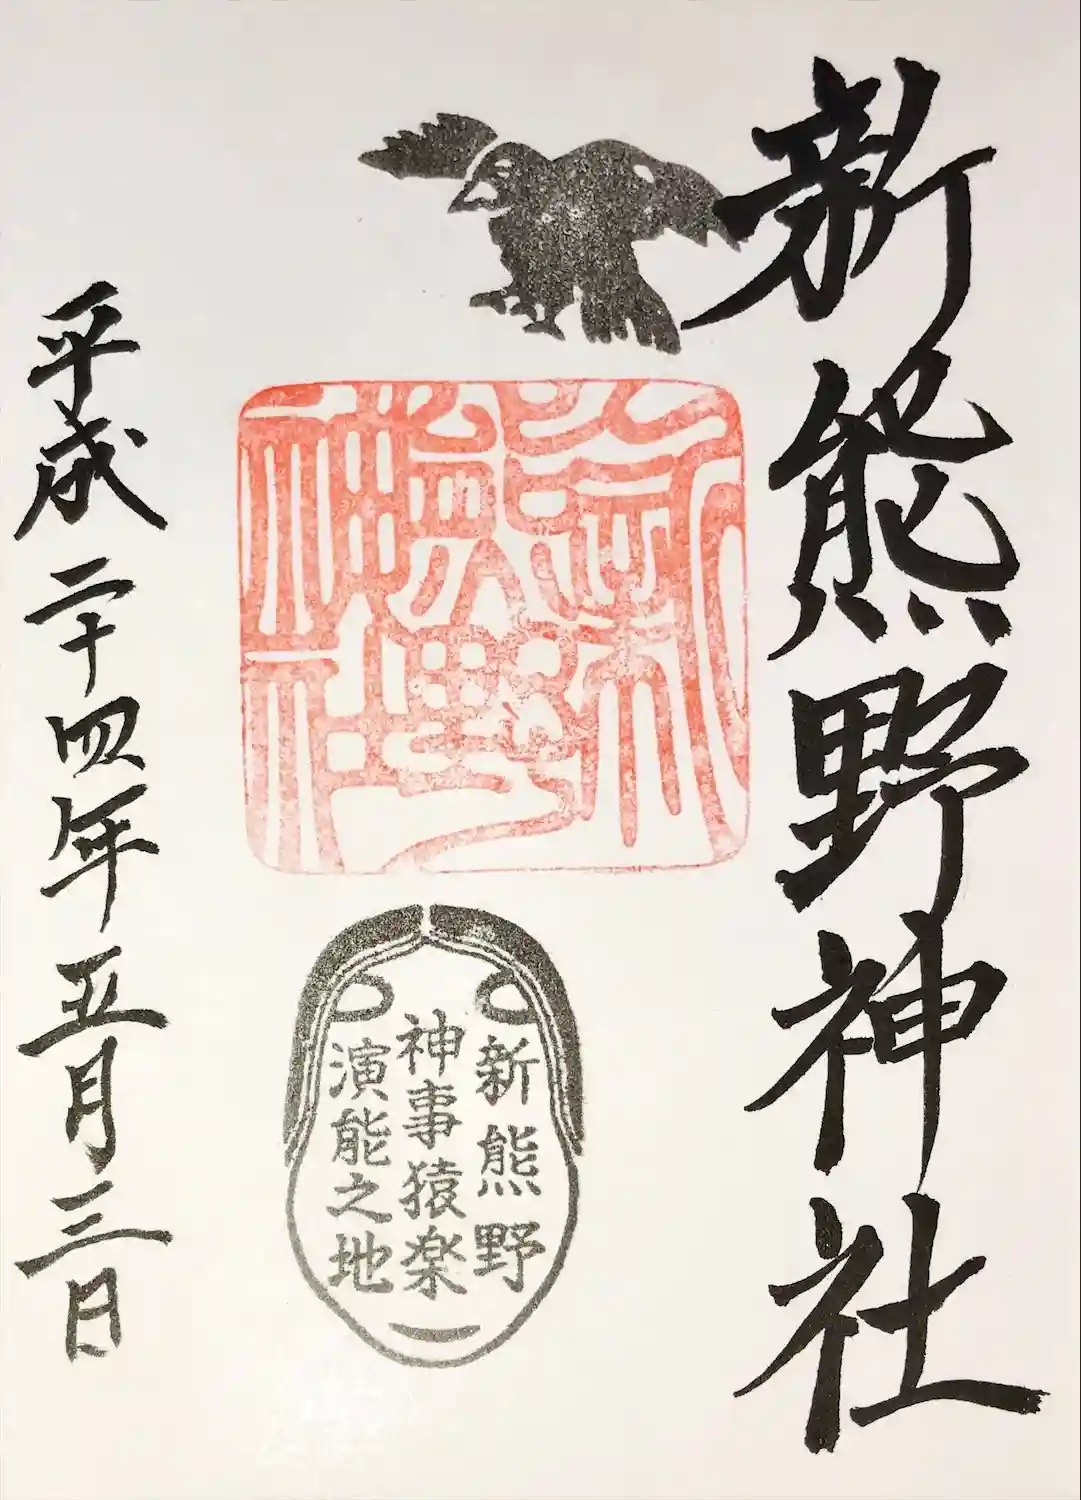 新熊野神社
新熊野
神事猿楽
演能之地
平成二十四年五月三日